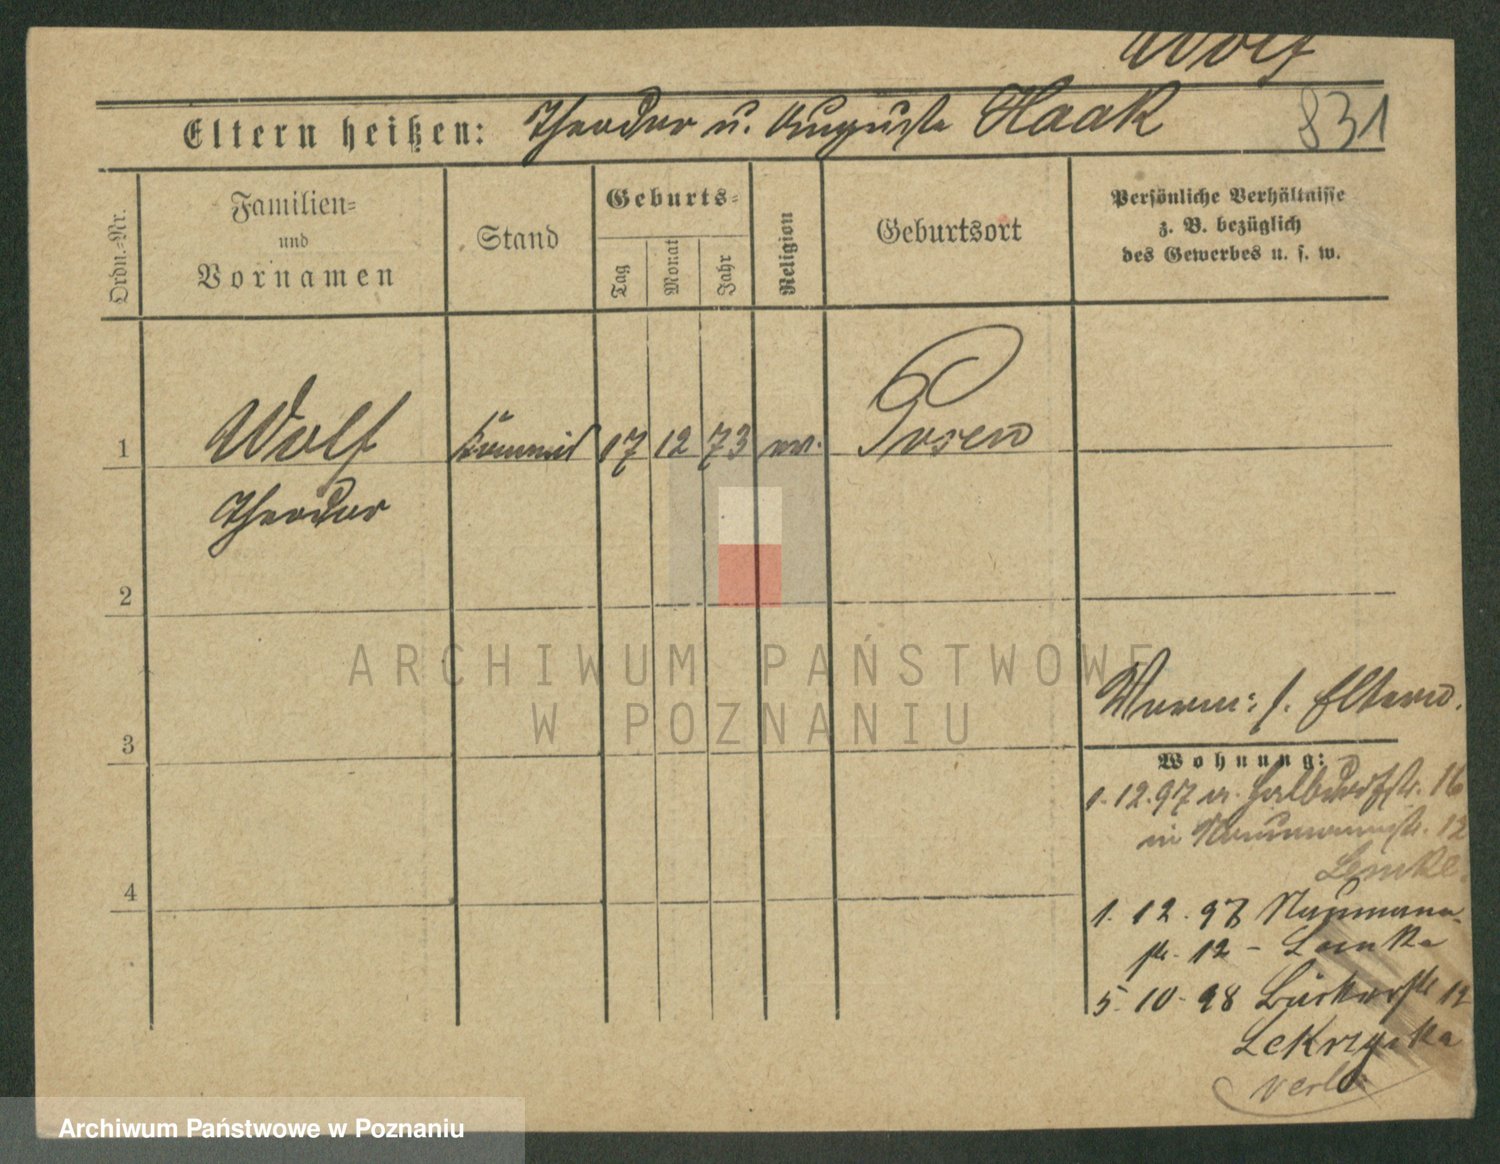 Wolf
Eltern heißen: Theodor u. Auguste Haak
831
Ordn.-Nr.
Familien-
und
Vornamen
Stand
Geburts-
Tag
Monat
Jahr
Religion
Geburtsort
Persönliche Verhältnisse
z. B. bezüglich
des Gewerbes u. s. w.
1 Wolf 17 12 73 Posen
Theodor
2
ARCHIWUM PAŃSTWOWE
W POZNANIU
s. Eltern.
3
Wohnung:
1. 12. 97 Halbdorfstr. 16
in Naumannstr. 12
Lemke.
4
1. 12. 97 Naumann-
str. 12 - Lemke
5. 10. 98 Bäckerstr 12
verb
Archiwum Państwowe w Poznaniu